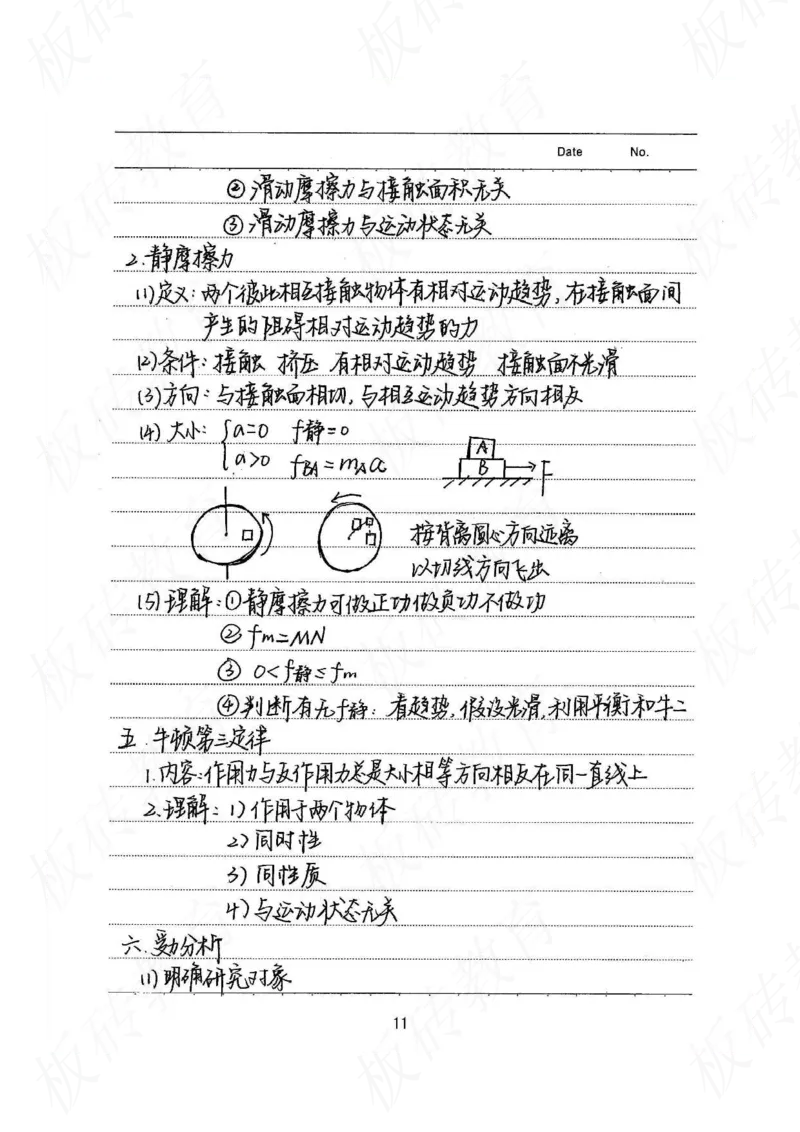 Date No.
②滑动摩擦力与接触面积无关
③滑动摩擦力与运动状态无关
2.静摩擦力
(1)定义:两个彼此相互接触物体有相对运动趋势,在接触面间
产生的阻碍相对运动趋势的力
(2)条件:接触 挤压 有相对运动趋势 接触面不光滑
(3)方向:与接触面相切,与相互运动趋势方向相反
(4)大小: a=0 f静=0
a>0 fBA=mAa
A
B
F
按背离圆心方向远离
以切线方向飞出
(5)理解:①静摩擦力可做正功做负功不做功
②fm=MN
③0<f静≤fm
④判断有无f静:看趋势,假设光滑,利用平衡和牛二
五.牛顿第三定律
1.内容:作用力与反作用力总是大小相等方向相反在同一直线上
2.理解:1)作用于两个物体
2)同时性
3)同性质
4)与运动状态无关
六.受力分析
(1)明确研究对象
11
板砖教育